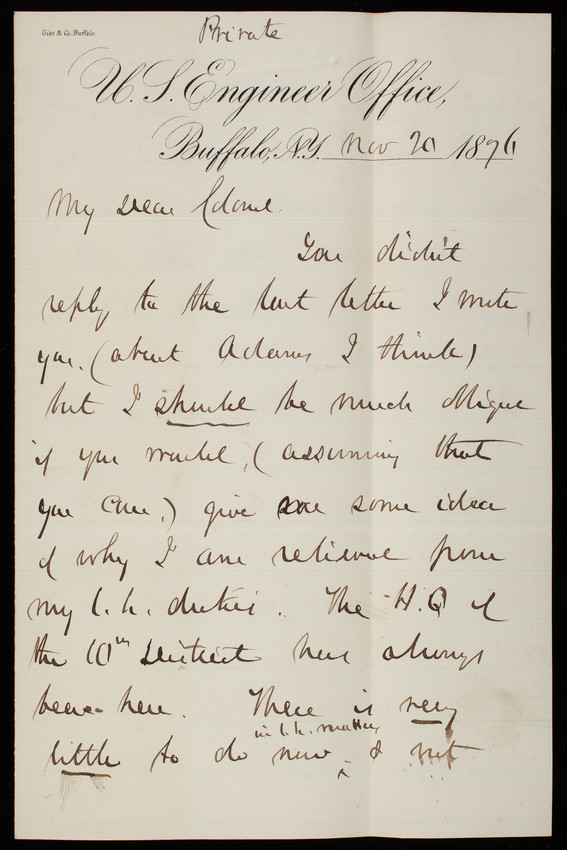 Gies & Co. Buffalo.
Private
U. S. Engineer Office,
Buffalo, N.Y. Nov 20 1896
My Dear Colonel
You didn't
reply to the last letter I wrote
you. (about Adams I think)
but I should be much obliged
if you would, (assuming that
you can,) give me some idea
of why I am relieved from
my l. h. duties. The H.Q of
the 10th District has always
been here. There is very
in l. h. matters
little to do now & not